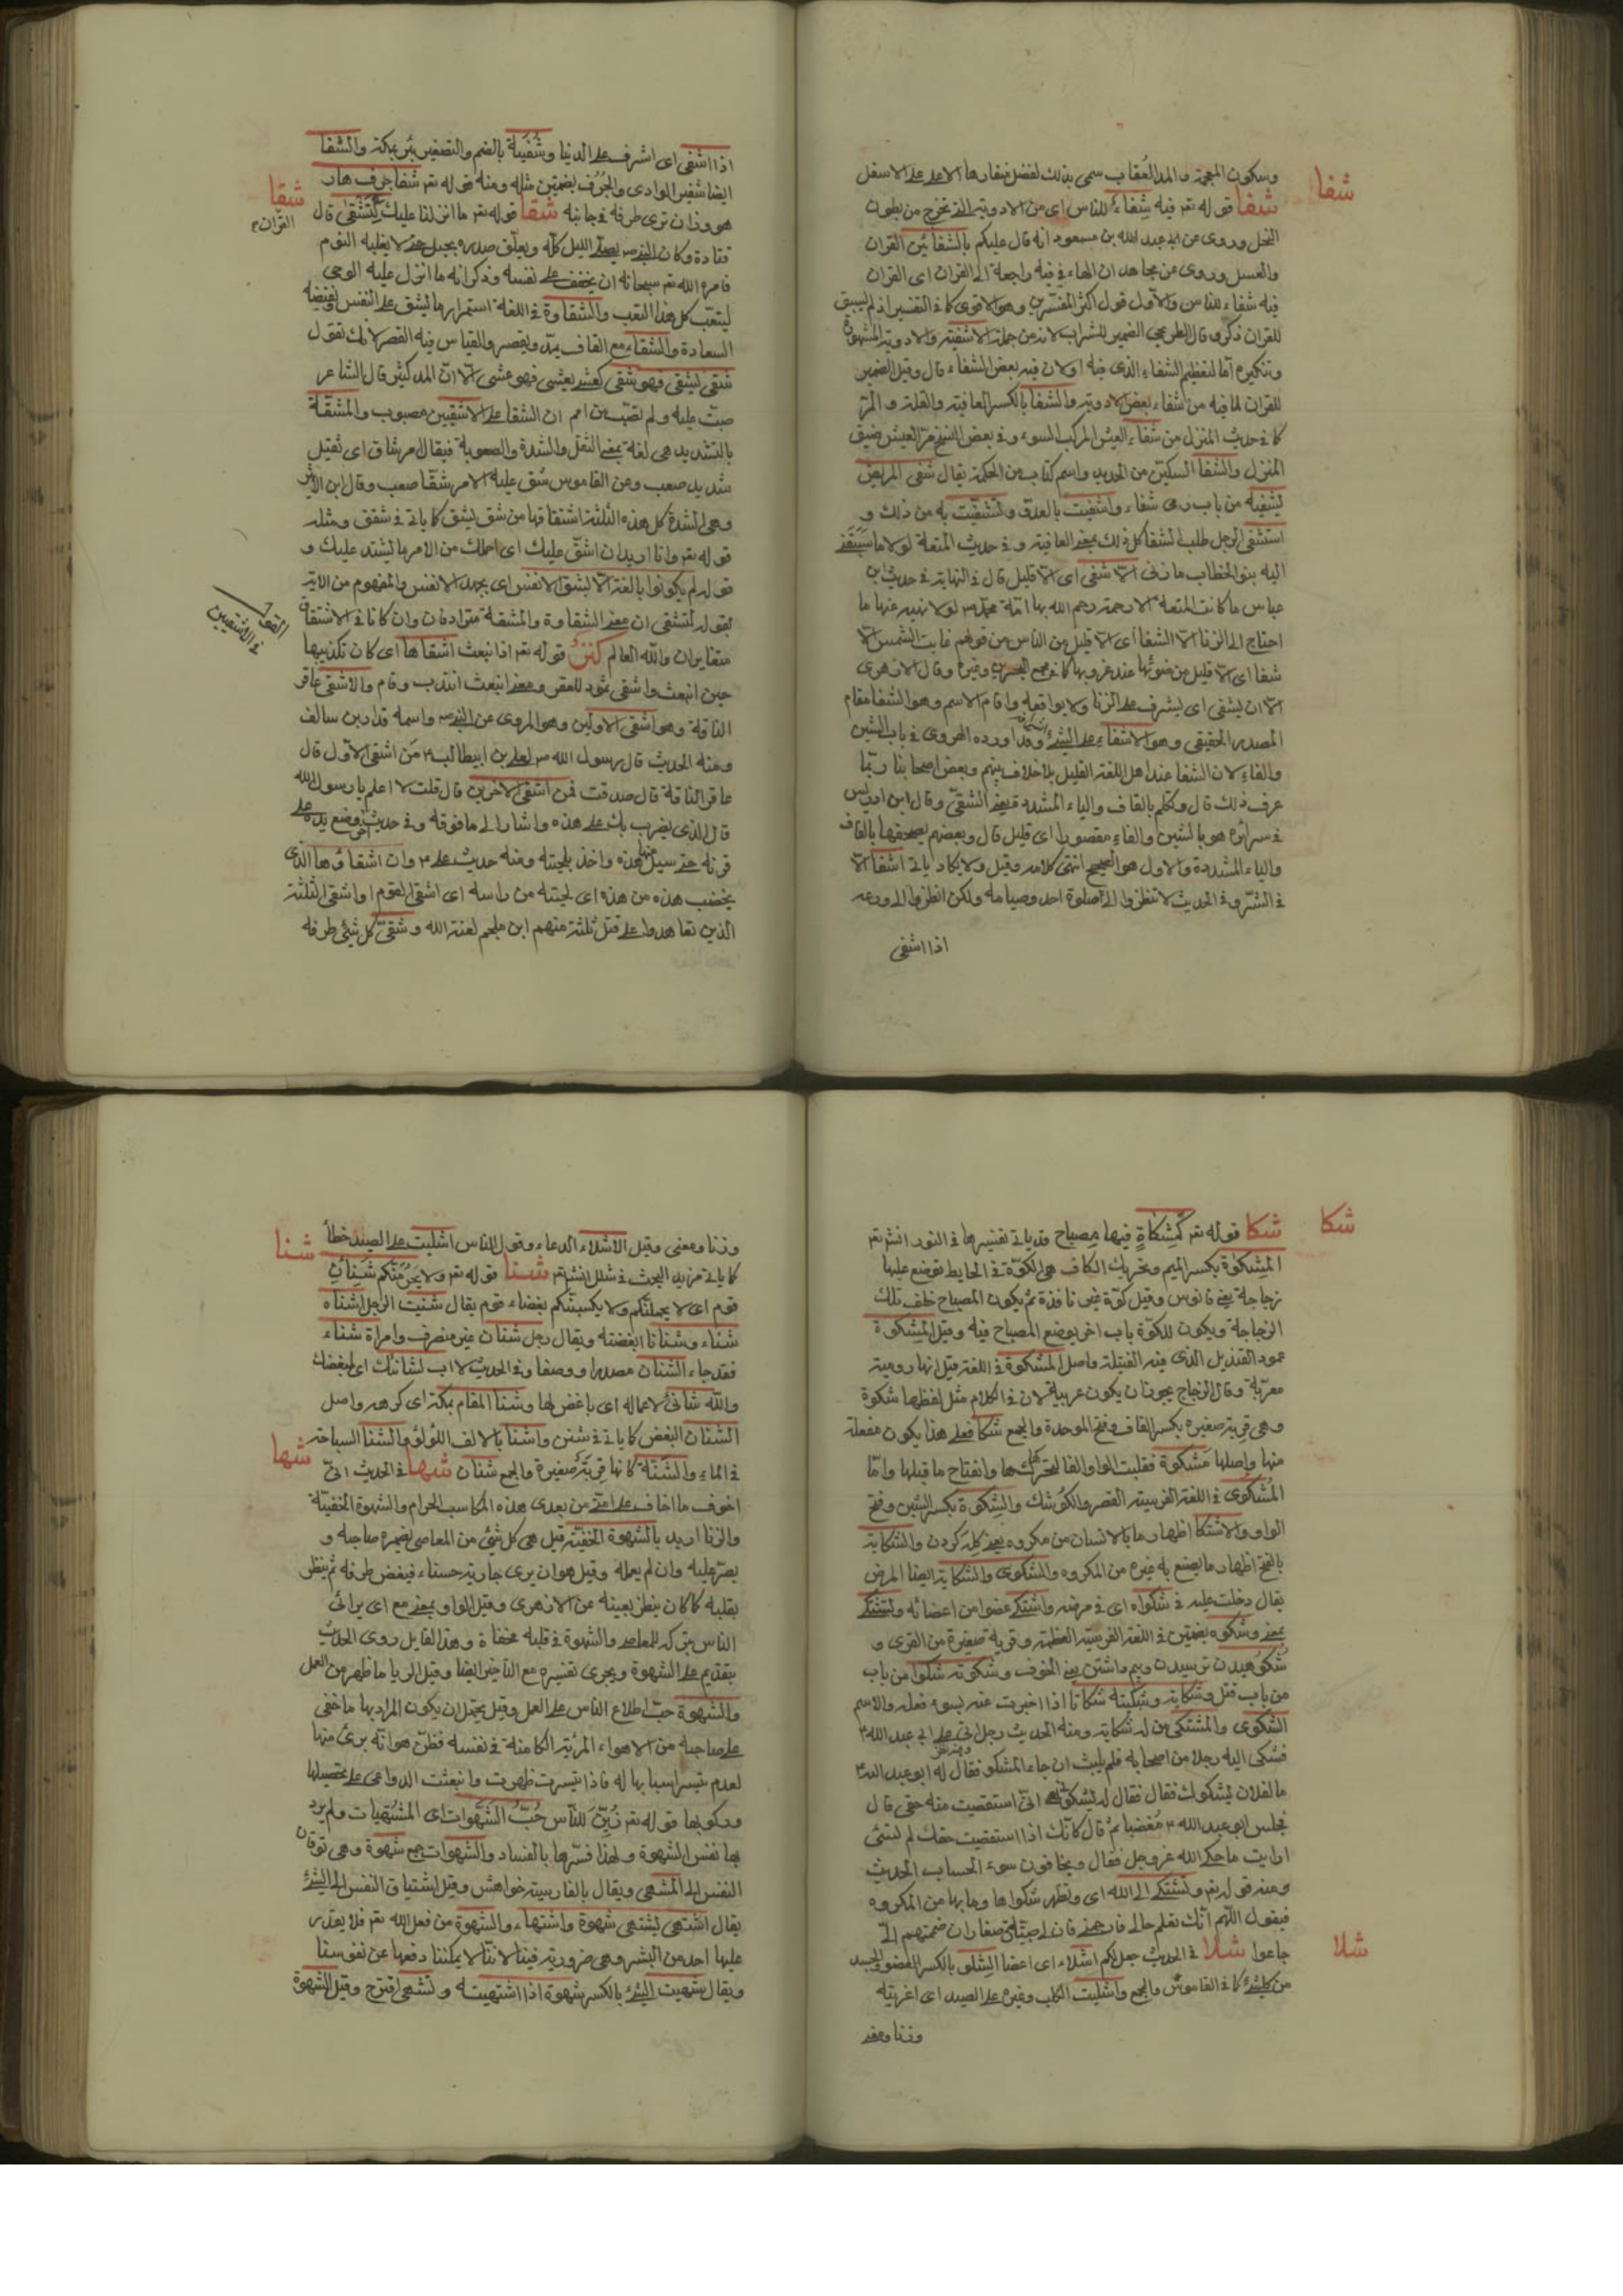 شفا
وسكون المعجمة والمد العُقاب سمى بذلك لفضل منقارها الاعلى على الاسفل
شفا قوله تعر فيه شِفاءٌ للناس اى من الادوية التى تخرج من بطون
النحل وروى عن ابى عبد الله بن مسعود انه قال عليكم بالشفائين القران
والعسل وروى عن مجاهد ان الهاء فى فيه راجعة الى القران اى القران
فيه شفاء للناس والاول قول اكثر المفسرين وهو الاقوى كما فى التفسير اذ لم يسبق
للقران ذكر وقال الطريحى الضمير للشراب لانه من جملة الاشفية والادوية المشهورة
وتنكيره اما لتعظيم الشفاء الذى فيه اولان فيه بعض الشفاء قال وقيل الضمير
للقران لما فيه من شفاء بعض الادوية والشفا بالكسر العافية والقلة و
كما فى حديث المنزل من شفاء العيش المركب السوء وفى بعض النسخ من العيش ضيق
المنزل والشفا السكين من الحديد واسم كتاب من الحكمة يقال شفى المريض
يشفيه من باب رمى شفاء واشفيت بالعدو وتشفيت به من ذلك و
استشفى الرجل طلب الشفا كل ذلك بمعنى العافية وفى حديث المتعة لولا ما سبقنى
اليه بنو الخطاب ما زنى الا شفى اى الا قليل قال فى النهاية فى حديث ابن
عباس ما كانت المتعة الا رحمة رحم الله بها امة محمد ص لولا نهيه عنها ما
احتاج الى الزنا الا الشفا اى الا قليل من الناس من قولهم غابت الشمس الا
شفا اى الا قليل من ضوئها عند غروبها كما فى مجمع البحرين وغيره وقال الازهرى
الا ان يشفى اى يشرف على الزنا ولا يواقعه واقام الاسم وهو الشفا مقام
المصدر الحقيقى وهو الاشفاء على الشئ وقد اورده الهروى فى باب الشين
والفاء لان الشفا عند اهل اللغة القليل بلا خلاف بينهم وبعض اصحابنا ربما
عرف ذلك قال وتكلم بالقاف والياء المشددة يعنى الشقى وقال ابن ادريس
فى سرائره هو بالشين والفاء مقصورا اى قليل قال وبعضهم يصحفها بالقاف
والياء المشددة والاول هو الصحيح انتهى كلامه وقيل ولا يكاد ياتى اشفا الا
فى الشر وفى الحديث لا تنظروا الى صلوة احد وصيامه ولكن انظروا الى ورعه
اذا اشفى
اذا اشفى اى اشرف على الدنيا وشُفَيَّة بالضم والتصغير بئر بمكة والشفا
ايضا شفير الوادى والجُرُف بضمتين مثله ومنه قوله تعر شفا جرف هار
شقا
هو وزان ترى طرفه وجانبه شقا قوله تعر ما انزلنا عليك لِتَشْقى قال
القران
قتادة وكان النبى ص يصلى الليل كله ويعلق صدره بحبل حتى لا يغلبه النوم
فامره الله تعر سبحانه ان يخفف على نفسه وذكر انه ما انزل عليه الوحى
ليتعب كل هذا التعب والشقاوة فى اللغة استمرار ما يشق على النفس ونقيضه
السعادة والشقاء مع القاف يمد ويقصر والقياس فيه القصر لانك تقول
شقى يشقى فهو شقى كعشى يعشى فهو عشى الا ان المد كثير قال الشاعر
صبّ عليه ولم تصب من امم ان الشقا على الاشقين مصبوب والمشقة
بالتشديد هى لغة بمعنى الثقل والشدة والصعوبة فيقال امر شاق اى ثقيل
شديد صعب وعن القاموس شق عليه الامر شقا صعب وقال ابن الاثير
وهى الشدة كل هذه الثلثة اشتقاقها من شق يشق كما ياتى فى شقق ومثله
قوله تعر وانا اريد ان اشق عليك اى احملك من الامر ما يشتد عليك و
قوله لم يكونوا بالغيه الا بشق الانفس اى بجهد الانفس والمفهوم من الاية
لقوله لتشقى ان معنى الشقاوة والمشقة مترادفان وان كانا فى الاشتقاق
القول فى الاشقين
متغايران والله العالم كنز قوله تعر اذ انبعث اشقاها اى كان تكذيبها
حين انبعث واشقى ثمود للعقر ومعنى انبعث انتدب وقام والاشقى عاقر
الناقة وهو اشقى الاولين وهو المروى عن النبى ص واسمه قدار بن سالف
ومنه الحديث قال رسول الله ص لعلى بن ابيطالب ع من اشقى الاول قال
عاقر الناقة قال صدقت فمن اشقى الاخرين قال قلت لا اعلم يا رسول الله
قال الذى يضربك على هذه واشار الى ما فوقه وفى حديث اخر وضع يده على
قرنه حتى يسيل منها هذه واخذ بلحيته ومنه حديث على ع وان اشقاؤها الذى
يخضب هذه من هذه اى لحيته من راسه اى اشقى القوم او اشقى الثلثة
الذين تعاهدوا على قتل ثلثة منهم ابن ملجم لعنة الله وشقى كل شئ طرفه
شكا
شكا قوله تعر كَمِشكاةٍ فيها مِصباح قد ياتى تفسيرها فى النور انشر تعر
المِشكوة بكسر الميم وتحريك الكاف هى الكوة فى الحايط توضع عليها
زجاجة يعنى فانوس وقيل كوة غير نافذة ثم يكون المصباح خلف تلك
الزجاجة ويكون للكوة باب اخر يوضع المصباح فيه وقيل المشكوة
عمود القنديل الذى فيه الفتيلة واصل المشكوة فى اللغة قيل انها رومية
معربة وقال الزجاج يجوز ان يكون عربية لان فى الكلام مثل لفظها شكوة
وهى قربة صغيرة بكسر القاف وفتح الموحدة والجمع شكا فعلى هذا يكون مفعلة
منها واصلها مَشكوة فقلبت الواو الفا لتحركها وانفتاح ما قبلها واما
المُشكوى فى اللغة الفرسية القصر والكوشك والشِكوة بكسر الشين وفتح
الواو والاشتكا اظهار ما بالانسان من مكروه يعنى كله كردن والشكاية
بالفتح اظهار ما يصنع به غيره من المكروه والشكوى والشكاية ايضا المرض
يقال دخلت عليه فى شكواه اى فى مرضه واشتكى عضوا من اعضائه وتشتكى
بمعنى وشكوه بضمتين فى اللغة الفرسية العظمة وقرية صغيرة من القرى و
شُكوهيدن ترسيدن وبيم داشتن يعنى الخوف وشكوته شكوا من باب
من باب قتل وشكاية وشكيته شكاتا اذا اخبرت عنه بسوء فعله والاسم
الشكوى والمشتكى من له شكاية ومنه الحديث رجل اتى على ابى عبد الله ع
فشكى اليه رجلا من اصحابه فلم يلبث ان جاء المشكو فقال له ابو عبد الله ع
ما لفلان يشكوك فقال فقال له يشكونى انى استقضيت منه حقى قال
فجلس ابو عبد الله ع مُغضبا ثم قال كانك اذا استقضيت حقك لم تسئ
ارايت ما حكى الله عز وجل فقال ويخافون سوء الحساب الحديث
ومنه قوله تعر وتشتكى الى الله اى وتظهر شكواها وما بها من المكروه
فيقول اللهم انك تعلم حالى فارحمنى فان لى صبية صغار ان ضممتهم الى
شلا
جاعوا شلا فى الحديث جعل لكم اشلاء اى اعضا الشِلو بالكسر العضو والجسد
من كل شئ كما فى القاموس والجمع واشليت الكلب وغيره على الصيد اى اغريته
وزنا ومعنى
وزنا ومعنى وقيل الاشلاء الدعاء وقول الناس اشليت على الصيد خطأ
شنا
كما ياتى مزيد البحث فى شلل انشر تعر شنا قوله تعر ولا يَجرِمَنَّكم شَنَئانُ
قوم اى لا يحملنكم ولا يكسبنكم بغضاء قوم يقال شنئت الرجل اشناه
شناء وشنانا ابغضته ويقال رجل شنان غير منصرف وامراة شناء
فقد جاء الشنان مصدرا ووصفا وفى الحديث لا اب لشانئك اى لمبغضك
والله شانئ لاعماله اى باغض لها وشنا المقام بمكة اى كرهه واصل
الشنان البغض كما ياتى فى شنن واشنا بالالف اللؤلؤ والشنا السباحة
شها
فى الماء والشنة كانها قربة صغيرة والجمع شنان شها فى الحديث انى
اخوف ما اخاف على امتى من بعدى هذه المكاسب الحرام والشهوة الخفية
والزنا اريد بالشهوة الخفية قيل هى كل شئ من المعاصى يضمره صاحبه و
يصر عليه وان لم يعمله وقيل هو ان يرى جارية حسناء فيغض طرفه ثم ينظر
بقلبه كما كان ينظر بعينه عن الازهرى وقيل الواو بمعنى مع اى يرائى
الناس بتركه للمعاصى والشهوة فى قلبه مخفاة وهذا القايل روى الحديث
بتقديم على الشهوة ويجرى تفسيره مع التاخير ايضا وقيل الريا ما ظهر من العمل
والشهوة حب اطلاع الناس على العمل وقيل يحتمل ان يكون المراد بها ما خفى
على صاحبه من الاهواء المرئية الكامنة فى نفسه فظن هو انه برئ منها
لعدم تيسر اسبابها له فاذا تيسرت ظهرت وانبعثت الدواعى على تحصيلها
وركوبها قوله تعر زُيِّنَ للناس حُبُّ الشَهَوات اى المشتهيات ولم يرد
بها نفس الشهوة ولهذا فسرها بالفساد والشهوات جمع شهوة وهى توقان
النفس الى المشهى ويقال بالفارسية خواهش وقيل اشتياق النفس الى الشئ
يقال اشتهى يشتهى شهوة واشتهاء والشهوة من فعل الله تعر فلا يقدر
عليها احد من البشر وهى ضرورية فينا لاننا لا يمكننا دفعها عن نفوسنا
ويقال شهيت الشئ بالكسر شهوة اذا اشتهيته وتشهى اقترح وقيل الشهوة